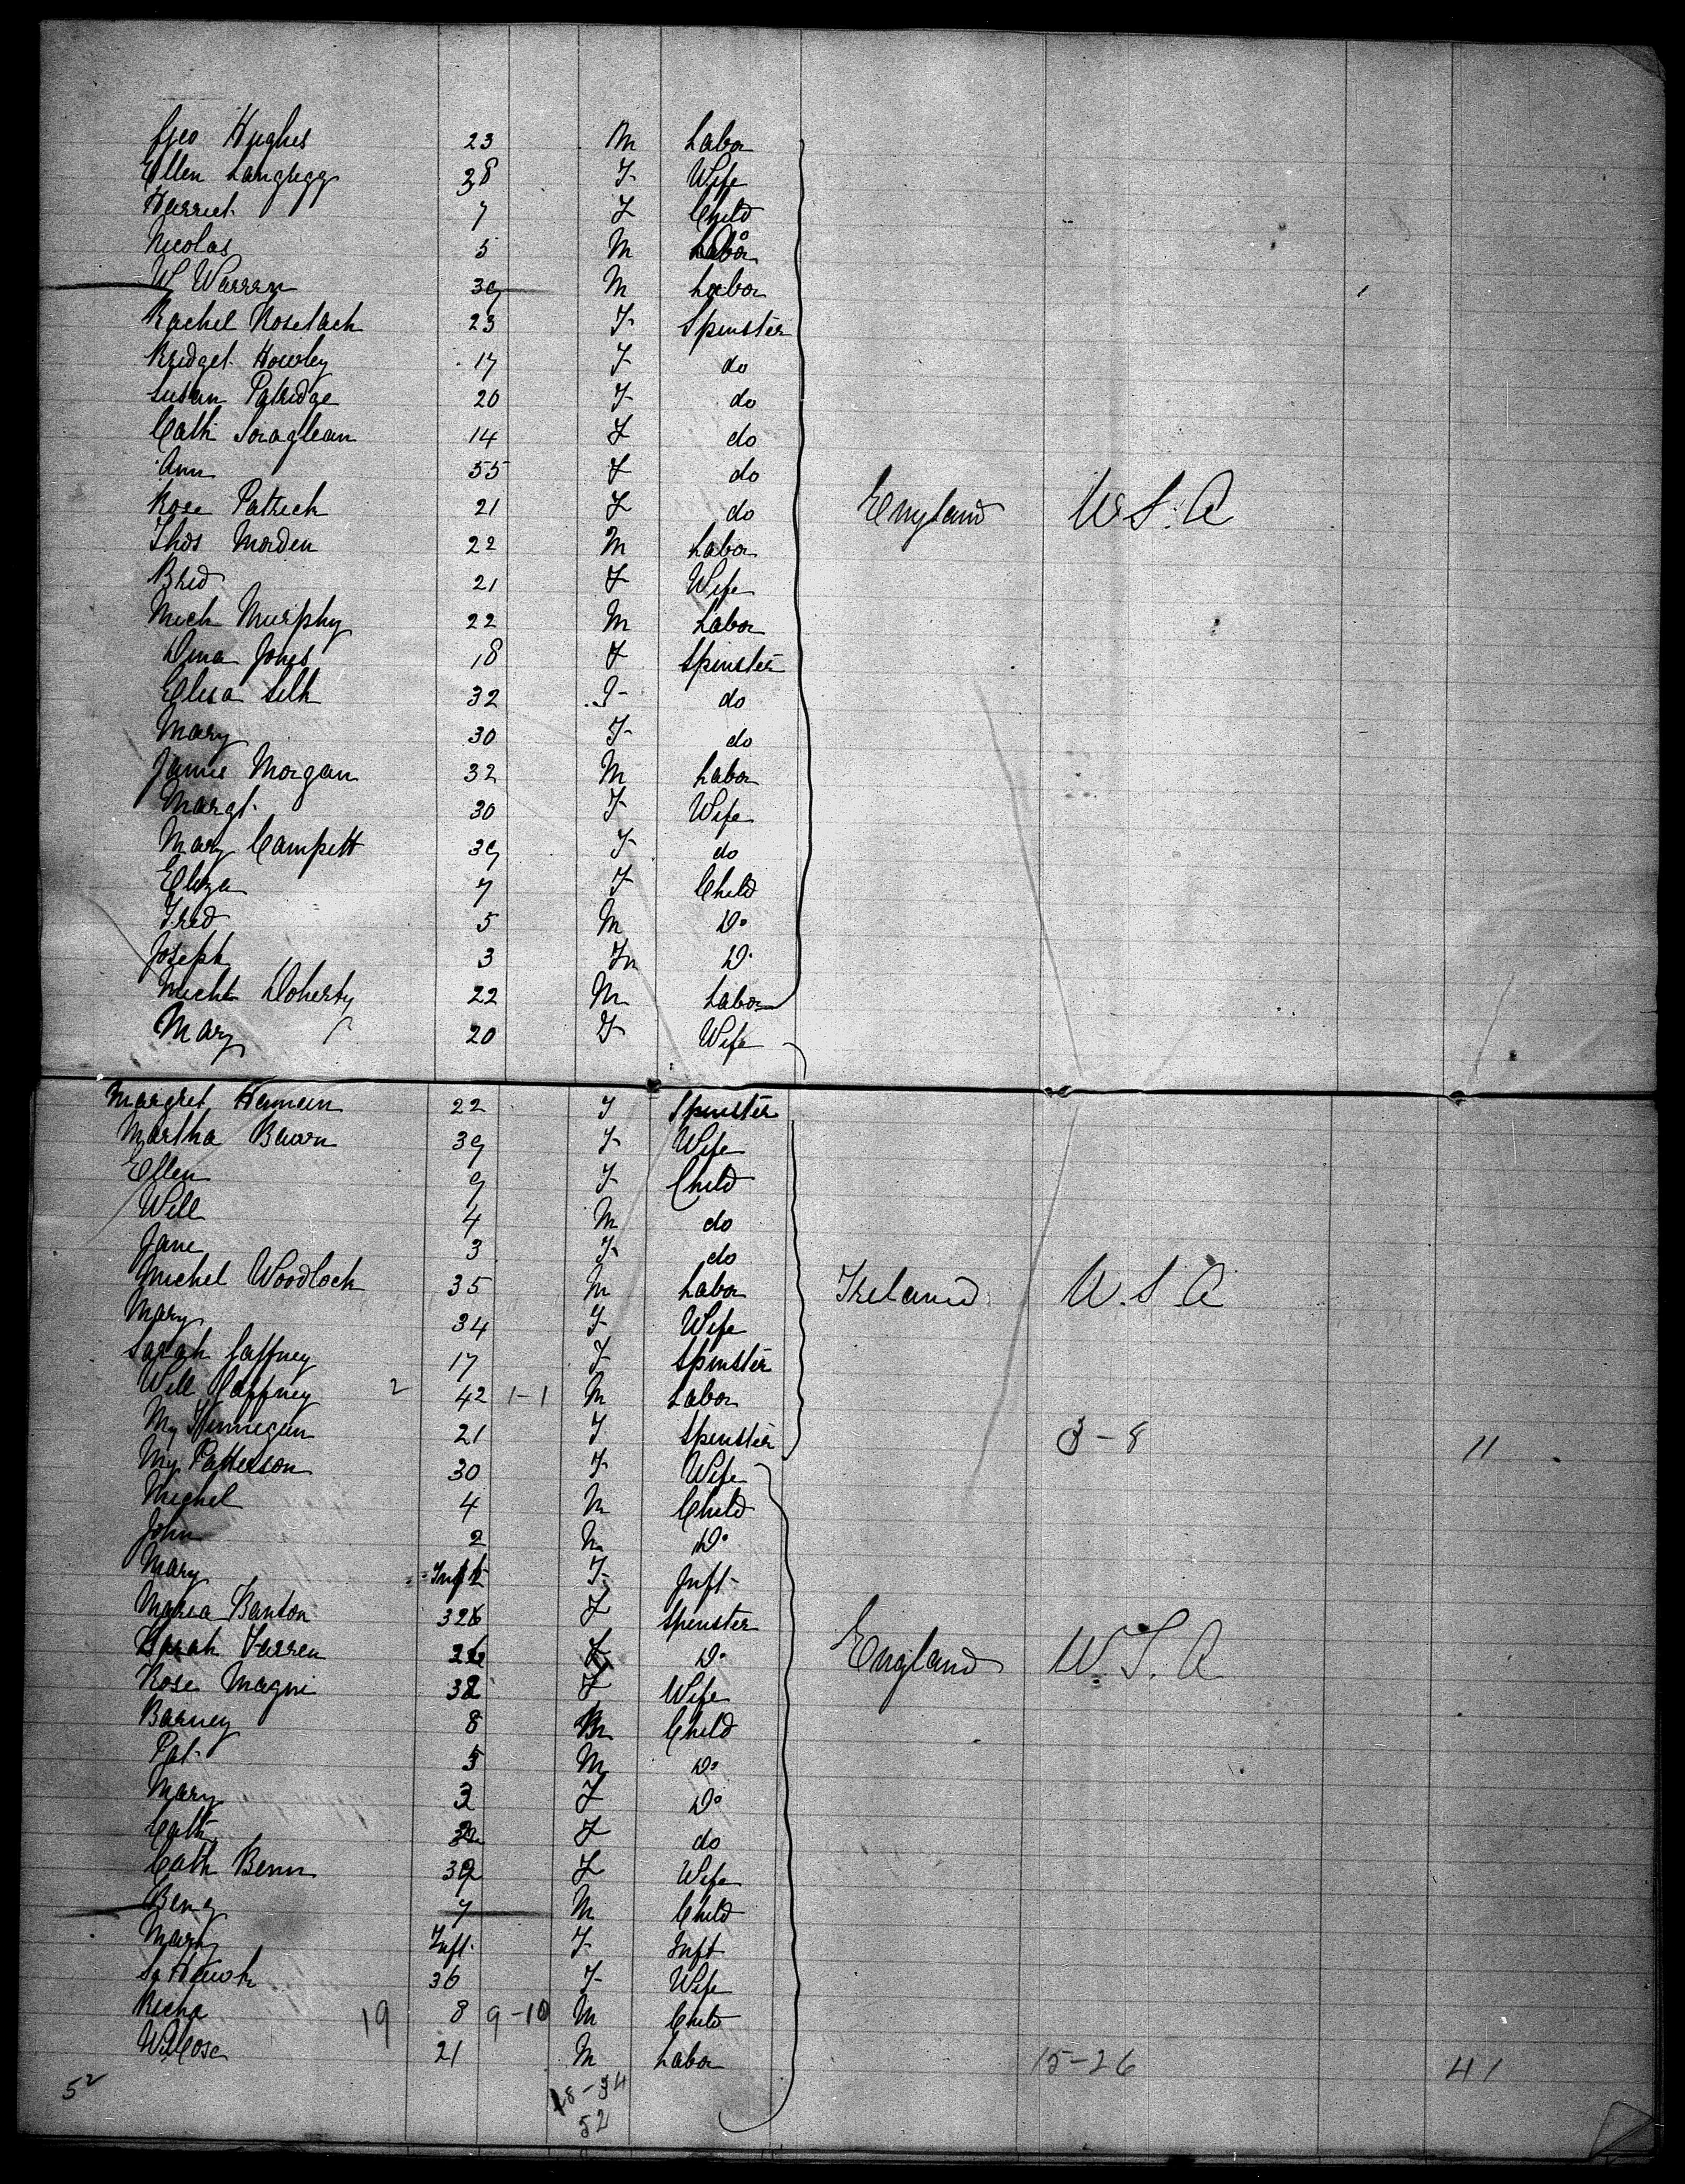 Geo Hughes 23 M Labor
Ellen 38 F Wife
Harriet 7 F Child
Nicolas 5 M Labor
W Warren 39 M Labor
Rachel 23 F Spinster
Bridget Howley 17 F do
Susan Patridge 20 F do
Cath 14 F do
Ann 55 F do
Rose Patrick 21 F do England U.S.A
Thos Morden 22 M Labor
Brid 21 F Wife
Mich Murphy 22 M Labor
Dina Jones 18 F Spinster
Eliza Silk 32 F do
Mary 30 F do
James Morgan 32 M Labor
Margt 30 F Wife
Mary Campett 39 F do
Eliza 7 F Child
Fred 5 M Do
Joseph 3 M Do
Michl Doherty 22 M Labor
Mary 20 F Wife
Margret 22 F Spinster
Martha 39 F Wife
Ellen 9 F Child
Will 4 M do
Jane 3 F do
Michel Woodlock 35 M Labor Ireland U.S.A
Mary 34 F Wife
Sarah Gaffney 17 F Spinster
Will Gaffney 2 42 1-1 M Labor
My Finnegan 21 F Spinster 3-8 11
My Patterson 30 F Wife
Michel 4 M Child
John 2 M Do
Mary Inft F Inft
Maria Banton F Spinster
Sarah Farren F Do England U.S.A
Rose Magni 32 F Wife
Barney 8 M Child
Pat 5 M Do
Mary 3 F Do
Cath F do
Cath Benn 39 F Wife
Benj 7 M Child
Mary Inft F Inft
36 F Wife
Richd 19 8 9-10 M Child
W Cose 21 M Labor 15-26 41
52 18-34
52